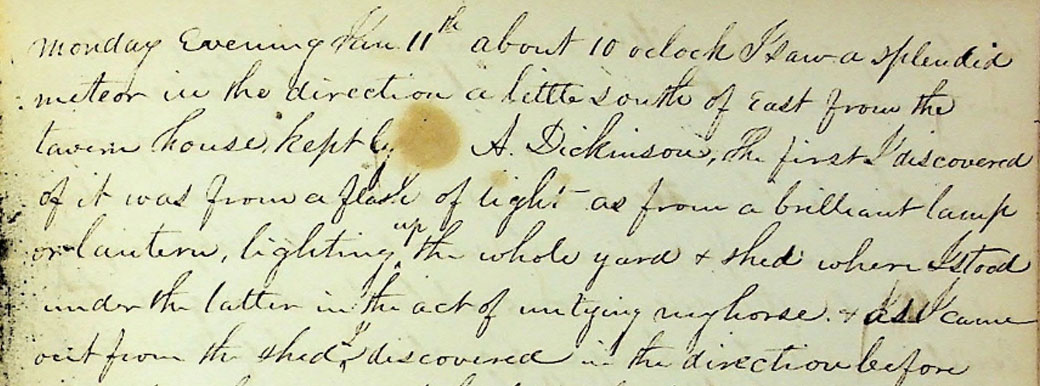 Monday Evening Jan 11th about 10 oclock I saw a splendid
meteor in the direction a little south of East from the
tavern house, kept by A. Dickinson, the first I discovered
of it was from a flash of light as from a brilliant lamp
or lantern, lighting up the whole yard & shed where I stood
under the latter in the act of untying my horse. & as I came
out from the shed, I discovered in the direction before